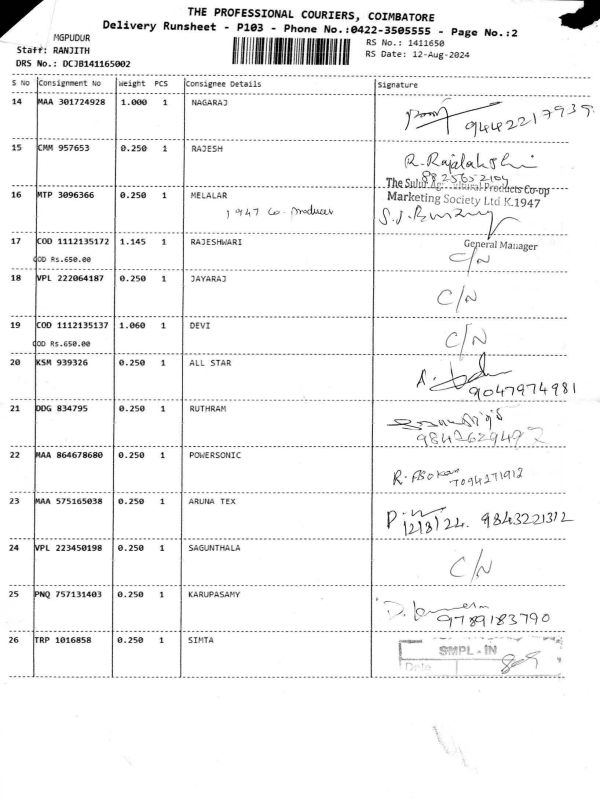 THE PROFESSIONAL COURIERS, COIMBATORE
Delivery Runsheet - P103 - Phone No.:0422-3505555 - Page No.:2
MGPUDUR
Staff: RANJITH
DRS No.: DCJB141165002
RS No.: 1411650
RS Date: 12-Aug-2024
S No Consignment No Weight PCS Consignee Details Signature
14 MAA 301724928 1.000 1 NAGARAJ
9442217939
15 CMM 957653 0.250 1 RAJESH
R. Rajalakshmi
8825652104
16 MTP 3096366 0.250 1 MELALAR
1947 Co-Producer
The Sulur Agricultural Products Co-op
Marketing Society Ltd K.1947
General Manager
17 COD 1112135172 1.145 1 RAJESHWARI
COD Rs.650.00
C/N
18 VPL 222064187 0.250 1 JAYARAJ
C/N
19 COD 1112135137 1.060 1 DEVI
COD Rs.650.00
C/N
20 KSM 939326 0.250 1 ALL STAR
9047974981
21 DDG 834795 0.250 1 RUTHRAM
22 MAA 864678680 0.250 1 POWERSONIC
7094271912
23 MAA 575165038 0.250 1 ARUNA TEX
12/8/24. 9843221312
24 VPL 223450198 0.250 1 SAGUNTHALA
C/N
25 PNQ 757131403 0.250 1 KARUPASAMY
9789183790
26 TRP 1016858 0.250 1 SIMTA
SMPL - IN
Date